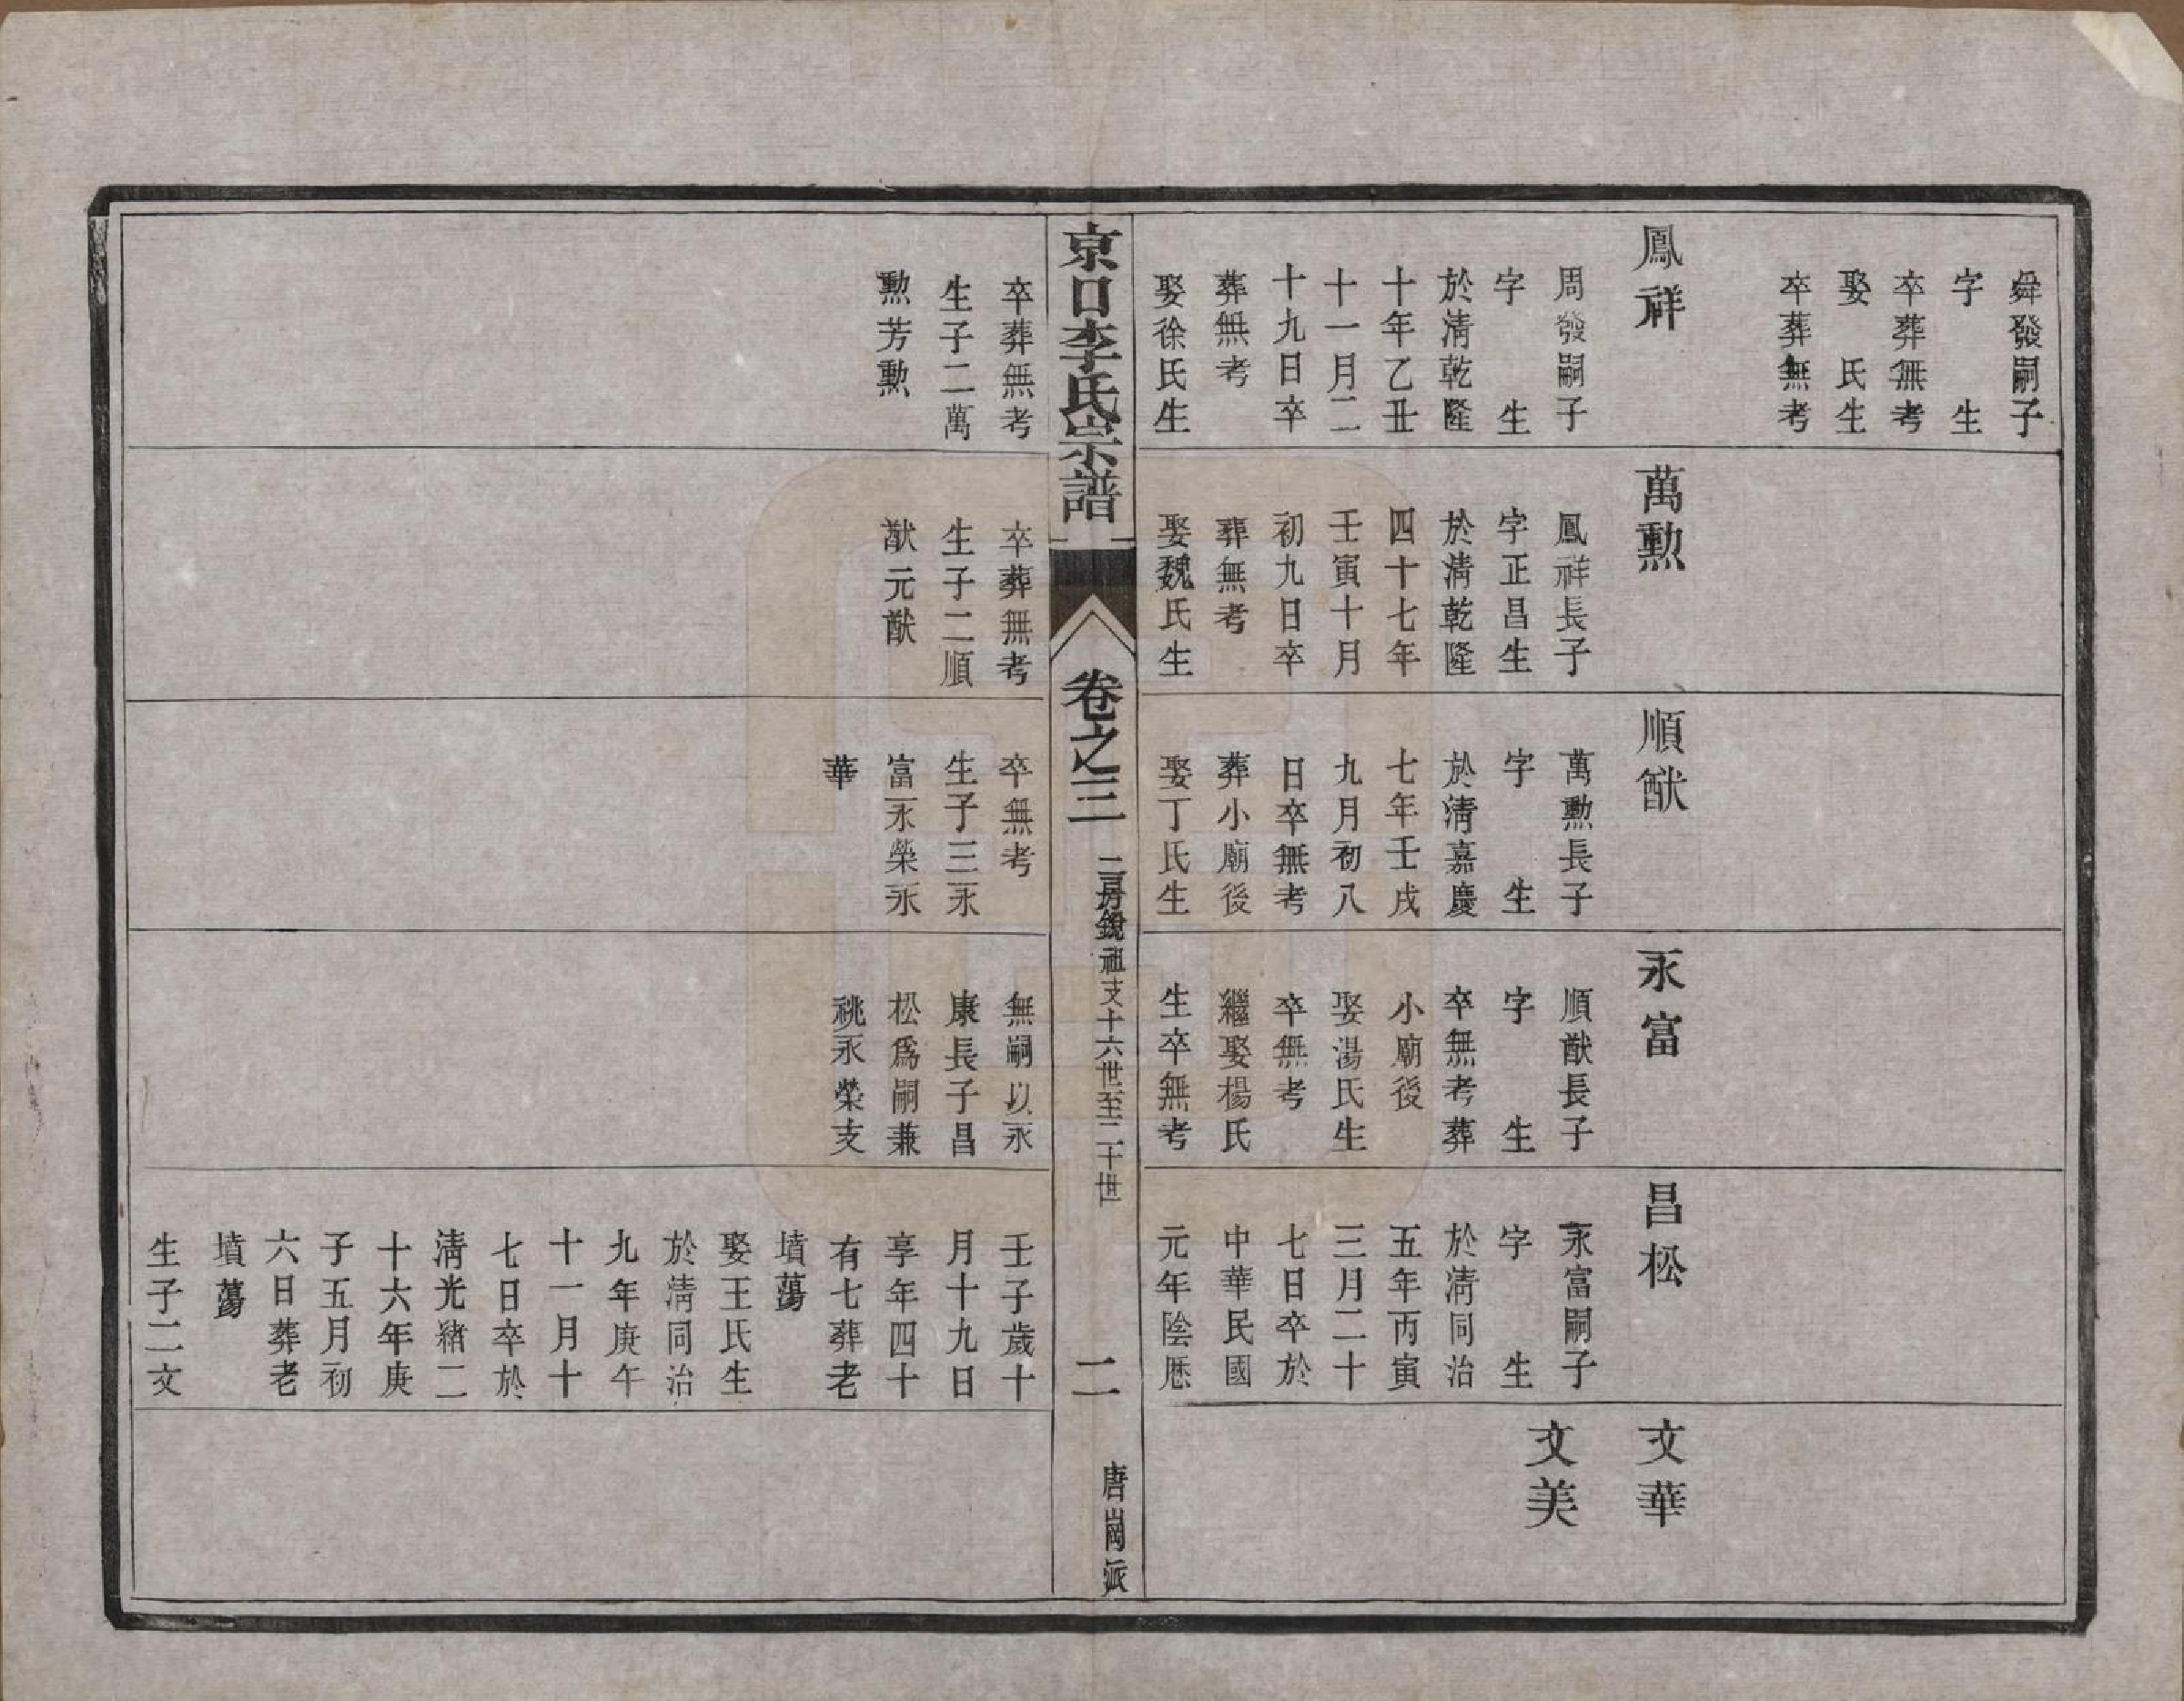 舜發嗣子
字　　生
卒葬無考
娶　氏生
卒葬無考
鳳祥
周發嗣子
字　　生
於清乾隆
十年乙丑
十一月二
十九日卒
葬無考
娶徐氏生
萬勲
鳳祥長子
字正昌生
於清乾隆
四十七年
壬寅十月
初九日卒
葬無考
娶魏氏生
順猷
萬勲長子
字　　生
於清嘉慶
七年壬戌
九月初八
日卒無考
葬小廟後
娶丁氏生
永富
順猷長子
字　　生
卒無考葬
小廟後
娶湯氏生
卒無考
繼娶楊氏
生卒無考
昌松
永富嗣子
字　　生
於清同治
五年丙寅
三月二十
七日卒於
中華民國
元年陰歷
文華
文美
京口李氏宗譜
卷之三
二房銳祖支十六世至二十世
二
唐崗派
卒葬無考
生子二萬
勲芳勲
卒葬無考
生子二順
猷元猷
卒無考
生子三永
富永榮永
華
無嗣以永
康長子昌
松爲嗣兼
祧永榮支
壬子歲十
月十九日
享年四十
有七葬老
墳蕩
娶王氏生
於清同治
九年庚午
十一月十
七日卒於
清光緒二
十六年庚
子五月初
六日葬老
墳蕩
生子二文